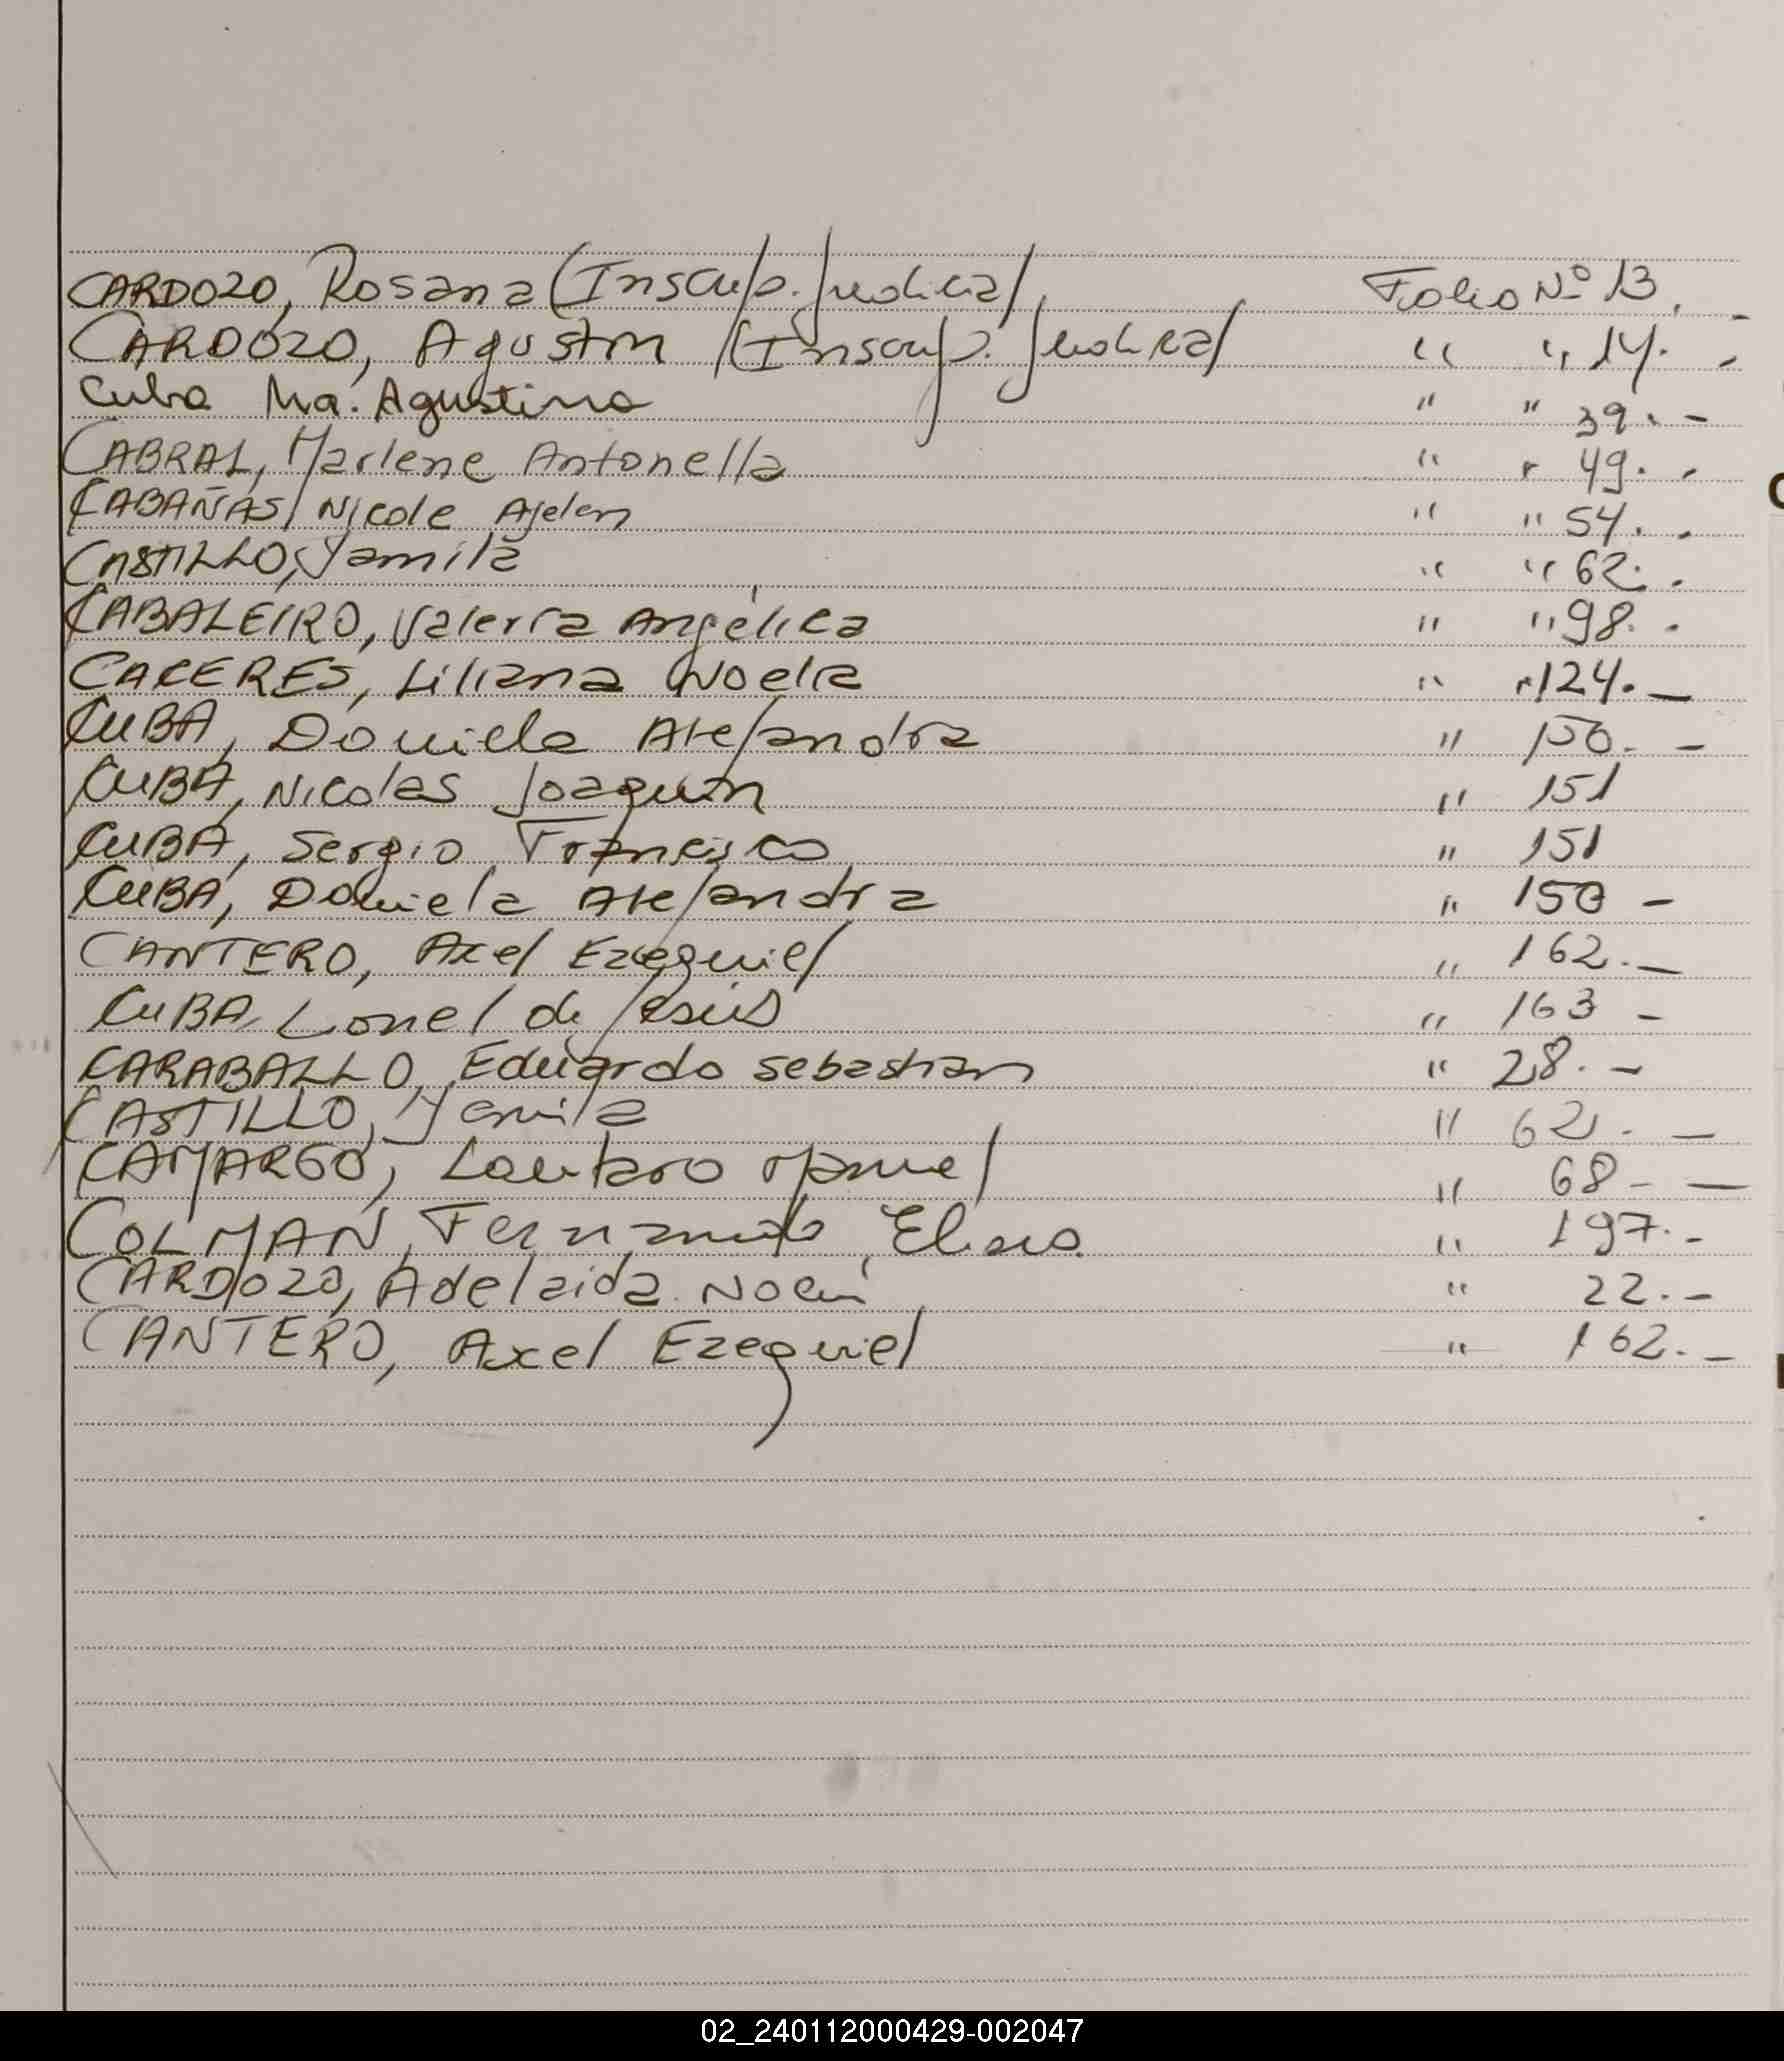 CARDOZO, Rosana (Inscrip. Judicial) Folio Nº 13.-
CARDOZO, Agustin (Inscrip. Judicial) " " 14.-
Cuba Ma. Agustina " " 39.-
CABRAL, Marlene Antonella " " 49.-
CABAÑAS, Nicole Ajelen " " 54.-
CASTILLO, Yamila " " 62.-
CABALEIRO, Valeria Angélica " " 98.-
CACERES, Liliana Noelia " " 124.-
CUBA, Daniela Alejandra " 150.-
CUBA, Nicolas Joaquin " 151
CUBA, Sergio Francisco " 151
CUBA, Daniela Alejandra " 150 -
CANTERO, Axel Ezequiel " 162.-
CUBA, Lionel de Jesús " 163 -
CARABALLO, Eduardo Sebastian " 28.-
CASTILLO, Yamila " 62.-
CAMARGO, Lautaro Manuel " 68.-
COLMAN, Fernando Eliseo. " 197.-
CARDOZO, Adelaida Noemí " 22.-
CANTERO, Axel Ezequiel " 162.-
02_240112000429-002047